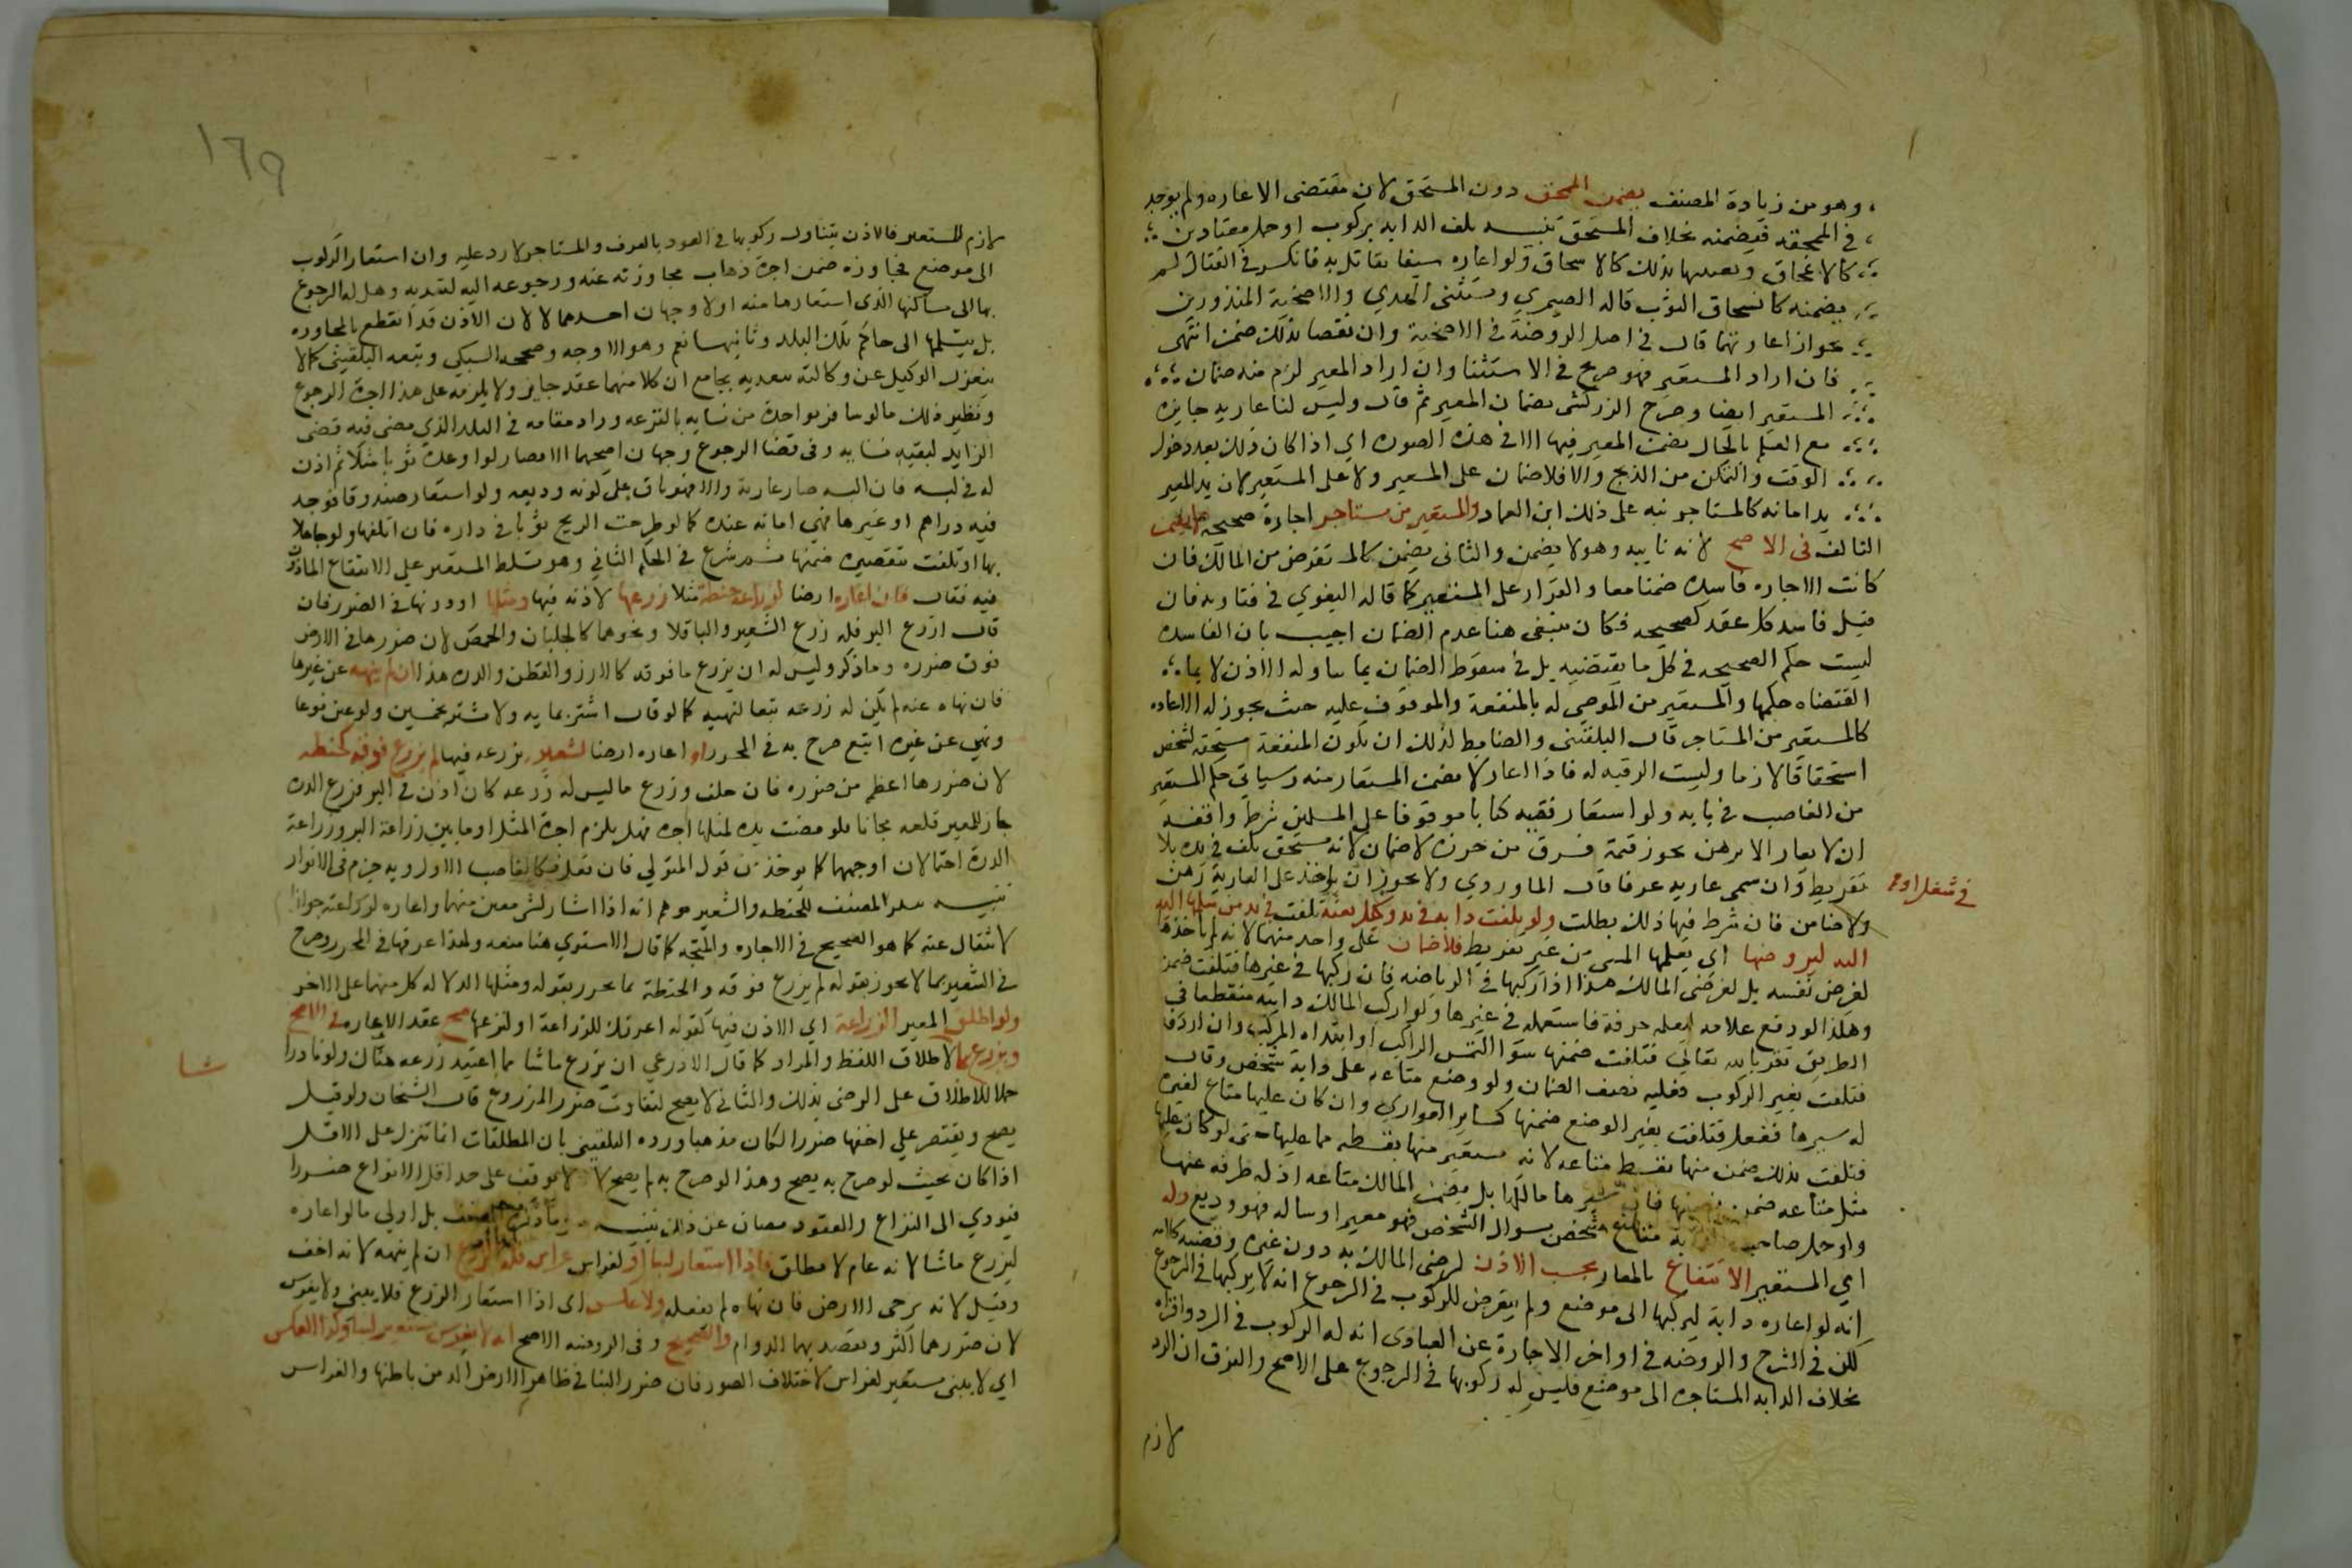 وهو من زيادة المصنف يضمن المنمحق دون المنسحق لان مقتضى الاعاره ولم يوجد
في المنمحقه فيضمنه بخلاف المنسحق تنبيه تلف الدابه بركوب او حمل معتادين
كالانمحاق وتعيبها بذلك كالانسحاق ولو اعاره سيفا يقاتل به فانكسر في القتال لم
يضمنه كانسحاق الثوب قاله الصيمري ويستثنى الهدي والاضحية المنذورين
جواز اعارتهما قال في اصل الروضة في الاضحية وان نقصا بذلك ضمن انتهى
فان اراد المستعير فهو صريح في الاستثنا وان اراد المعير لزم منه ضمان
المستعير ايضا وصرح الزركشي بضمان المعير ثم قال وليس لنا عارية جايزه
مع العلم بالحال يضمن المعير فيها الا في هذه الصورة اي اذا كان ذلك بعد دخول
الوقت والتمكن من الذبح والا فلا ضمان على المعير ولا على المستعير لان يد المعير
يد امانه كالمستاجر نبه على ذلك ابن العماد والمستعير من مستاجر اجارة صحيحة لا يضمن
التالف في الاصح لانه نايبه وهو لا يضمن والثاني يضمن كالمستعير من المالك فان
كانت الاجاره فاسده ضمنا معا والقرار على المستعير كما قاله البغوي في فتاويه فان
قيل فاسد كل عقد كصحيحه فكان ينبغي هنا عدم الضمان اجيب بان الفاسده
ليست حكم الصحيحه في كل ما يقتضيه بل في سقوط الضمان بما يتناوله الاذن لا بما
اقتضاه حكمها والمستعير من الموصى له بالمنفعة والموقوف عليه حيث يجوز له الاعاره
كالمستعير من المستاجر قال البلقيني والضابط لذلك ان تكون المنفعة مستحقه لشخص
استحقاقا لازما وليست الرقبه له فاذا اعار لا يضمن المستعار منه وسياتي حكم المستعير
من الغاصب في بابه ولو استعار فقيه كتابا موقوفا على المسلمين شرط واقفه
ان لا يعار الا برهن يحرز قيمة فسرق من حرزه لا ضمان لانه مستحق تلف في يده بلا
تفريط وان سمي عاريه عرفا قال الماوردي ولا يجوز ان يؤخذ على العارية رهن
ولا ضامن فان شرط فيها ذلك بطلت ولو تلفت دابته في يد وكيل بعثه تلفت في يد من سلمها اليه
في شغله او
اليه ليروضها اي يعلمها المشي من غير تفريط فلا ضمان على واحد منهما لانه لم ياخذها
لغرض نفسه بل لغرض المالك هذا اذا ركبها في الرياضه فان ركبها في غيرها فتلفت ضمن
وهكذا لو دفع غلامه ليعلمه حرفة فاستعمله في غيرها ولو اركب المالك دابته منقطعا في
الطريق تقربا لله تعالى فتلفت ضمنها سوا التمس الراكب او ابتداه المركب وان اردفه
فتلفت بغير الركوب فعليه نصف الضمان ولو وضع متاعه على دابة شخص وقال
له سيرها ففعل فتلفت بغير الوضع ضمنها كسائر العواري وان كان عليها متاع لغيره
فتلفت بذلك ضمن منها بقسط متاعه لانه مستعير منها بقسطه مما عليها حتى لو كان عليها
مثل متاعه ضمن نصفها فان سيرها مالكها بل يضمن المالك متاعه اذ له طرفه عنها
ولو حمل صاحب متاع شخص بسوال الشخص فهو معير او ساله فهو وديع وله
اي المستعير الانتفاع بالمعار بحسب الاذن لرضى المالك به دون غيره وقضية كلامه
انه لو اعاره دابة ليركبها الى موضع ولم يتعرض للركوب في الرجوع انه لا يركبها في الرجوع
لكن في الشرح والروضه في اواخر الاجارة عن العبادي انه له الركوب في الرد واقراه
بخلاف الدابه المستاجره الى موضع فليس له ركوبها في الرجوع على الاصح والفرق ان الرد
لازم
١٦٩
لازم للمستعير فالاذن يتناول ركوبها في العود بالعرف والمستاجر لا رد عليه وان استعار الركوب
الى موضع فجاوزه ضمن اجرة ذهاب مجاوزته عنه ورجوعه اليه لتعديه وهل له الرجوع
بها الى مكانها الذي استعارها منه او لا وجهان احدهما لا لان الاذن قد انقطع بالمجاوزه
بل يسلمها الى حاكم تلك البلد وثانيهما نعم وهو الاوجه وصححه السبكي وتبعه البلقيني كما لا
ينعزل الوكيل عن وكالته بتعديه بجامع ان كلا منهما عقد جايز ولا يلزمه على هذا اجرة الرجوع
ونظير ذلك ما لو سافر بواحدة من نسايه بالقرعه وزاد مقامه في البلد الذي مضى فيه قضى
الزايد لبقية نسايه وفي قضا الرجوع وجهان اصحهما لا قضا ولو اودعه ثوبا مثلا ثم اذن
له في لبسه فان لبسه صار عارية والا فهو باق على كونه وديعه ولو استعار صندوقا فوجد
فيه دراهم او غيرها فهي امانه عنده كما لو طرحت الريح ثوبا في داره فان اتلفها ولو جاهلا
بها او تلفت بتقصيره ضمنها ثم شرع في الحكم الثاني وهو تسلط المستعير على الانتفاع الماذون
فيه فقال فان اعاره ارضا لزراعة حنطة مثلا زرعها لاذنه فيها ومثلها او دونها في الضرر فان
قال ازرع البر فله زرع الشعير والباقلا ونحوهما كالجلبان والحمص لان ضررها في الارض
فوق ضرره وما ذكر وليس له ان يزرع ما فوقه كالارز والقطن والذره هذا ان لم ينهه عن غيرها
فان نهاه عنه لم يكن له زرعه تبعا لنهيه كما لو قال اشتر بمايه ولا تشتر بخمسين ولو عين نوعا
ونهى عن غيره اتبع صرح به في المحرر او اعاره ارضا لشعير يزرعه فيها لم يزرع فوقه كحنطه
لان ضررها اعظم من ضرره فان خالف وزرع ما ليس له زرعه كان اذن في البر فزرع الذره
جاز للمعير قلعه مجانا فلو مضت مده لمثلها اجره فهل يلزم اجرة المثل او ما بين زراعة البر وزراعة
الذرة احتمالان اوجههما كما يوخذ من قول المتولي فان فعل فكالغاصب الاول وبه جزم في الانوار
تنبيه المصنف للحنطه والشعير موهم انه اذا اشار لشي معين منهما واعاره لزراعته جواز
الانتقال عنه كما هو الصحيح في الاجاره والمتجه كما قال الاسنوي هنا منعه ولهذا عرفها في المحرر وصرح
في الشعير بما لا يجوز بقوله لم يزرع فوقه والحنطة بما يجوز بقوله ومثلها لدلالة كل منهما على الاخر
ولو اطلق المعير الزراعة اي الاذن فيها كقوله اعرتك للزراعة او لتزرعها صح عقد الاعاره في الاصح
ويزرع ما لاطلاق اللفظ والمراد كما قال الاذرعي ان يزرع ما شا مما اعتيد زرعه هناك ولو نادرا
شا
حملا للاطلاق على الرضى بذلك والثاني لا يصح لتفاوت ضرر المزروع قال الشيخان ولو قيل
يصح ويقتصر على اخفها ضررا لكان مذهبا ورده البلقيني بان المطلقات انما تنزل على الاقل
اذا كان بحيث لو صرح به يصح وهذا لو صرح به لم يصح لانه لا يوقف على حد اقل الانواع ضررا
فيودي الى النزاع والعقود تصان عن ذلك تنبيه المصنف بل اولى ما لو اعاره
ليزرع ما شا لانه عام لا مطلق واذا استعار لبنا او لغراس غراس فله الزرع ان لم ينهه لانه اخف
وقيل لا لانه يرخي الارض فان نهاه لم يفعله ولا عكس اي اذا استعار الزرع فلا يبني ولا يغرس
لان ضررهما اكثر ويقصد بهما الدوام والصحيح وفي الروضه الاصح انه لا يغرس مستعير لبنا وكذا العكس
اي لا يبني مستعير لغراس لاختلاف الضرر فان ضرر البنا في ظاهر الارض اكثر من باطنها والغراس